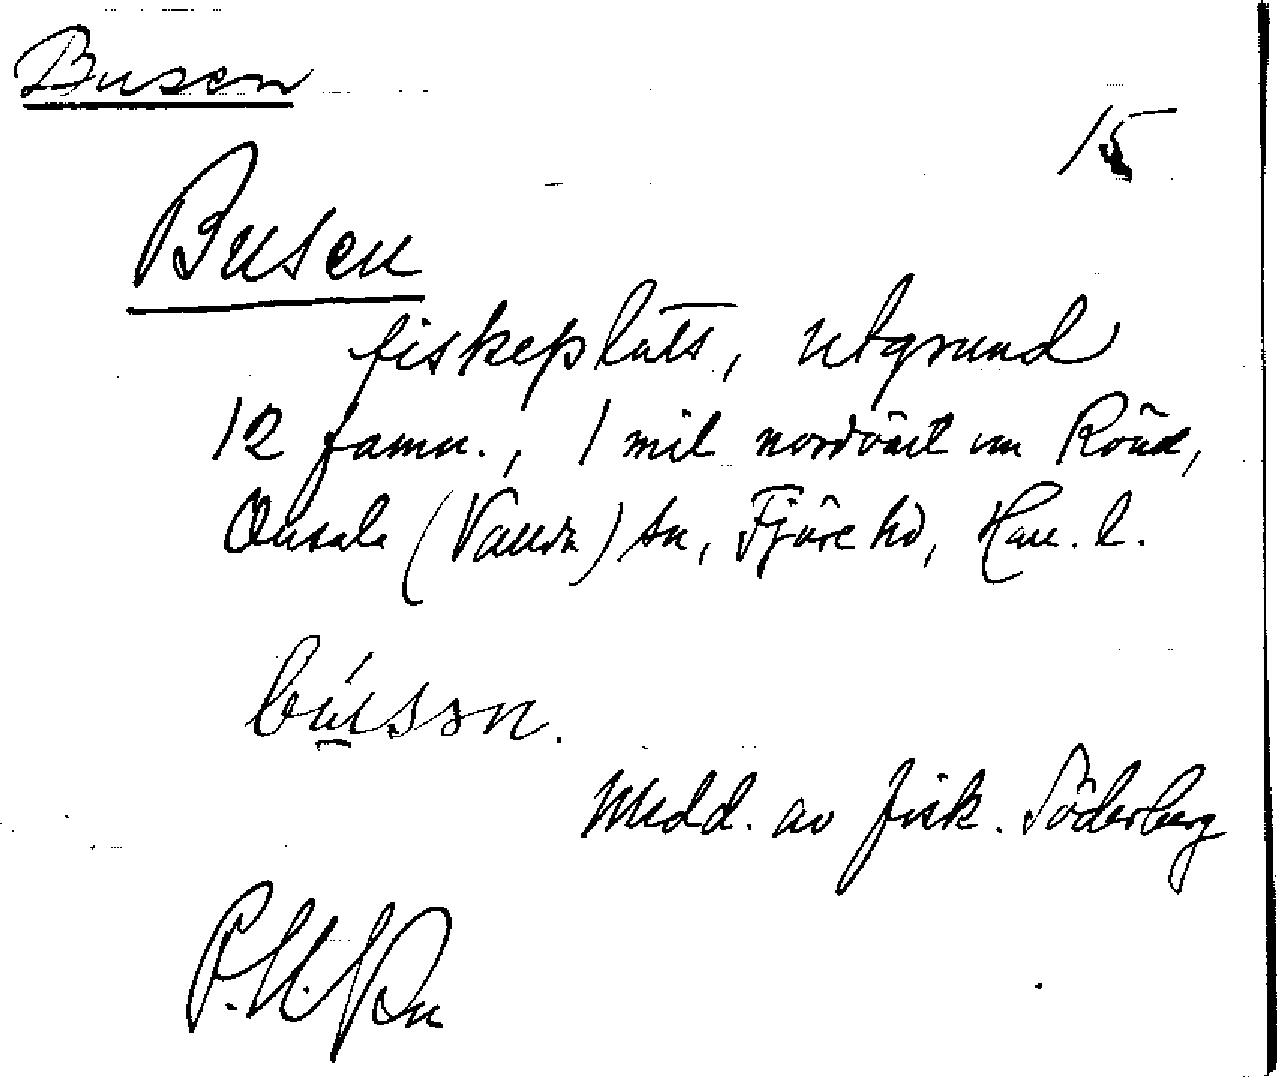 Busen
15
Busen
fiskeplats, utgrund
12 famn., 1 mil nordväst om Röda,
Onsala (Vallda) sn, Fjäre hd, Hall. l.
bússon.
Medd. av fisk. Söderberg